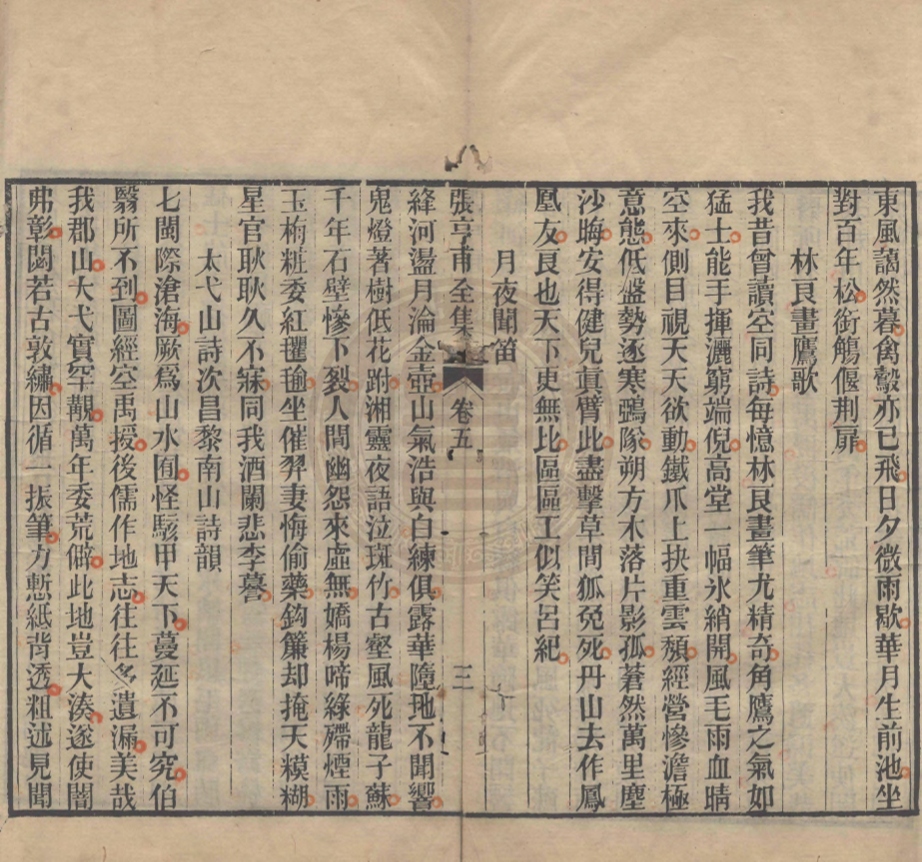 東風藹然暮禽鷇亦已飛日夕微雨歇華月生前池坐
對百年松銜觴偃荆扉
林良畫鷹歌
我昔曾讀空同詩每憶林良畫筆尤精奇角鷹之氣如
猛士能手揮灑窮端倪高堂一幅氷綃開風毛雨血晴
空來側目視天天欲動鐵爪上抉重雲頽經營慘澹極
意態低盤勢逐寒鵶隊朔方木落片影孤蒼然萬里塵
沙晦安得健兒眞臂此盡擊草間狐兔死丹山去作鳳
凰友良也天下更無比區區工似笑呂紀
月夜聞笛
張亨甫全集 卷五 三
絳河盪月淪金壺山氣浩與白練俱露華墮地不聞響
鬼燈著樹低花跗湘靈夜語泣斑竹古壑風死龍子蘇
千年石壁慘下裂人間幽怨來虛無嬌楊啼綠殢煙雨
玉梅粧委紅氍毹坐催羿妻悔偷藥鈎簾却掩天糢糊
星官耿耿久不寐同我酒闌悲李謩
太弋山詩次昌黎南山詩韻
七閩際滄海厥爲山水囿怪駭甲天下蔓延不可究伯
翳所不到圖經空禹授後儒作地志往往多遺漏美哉
我郡山大弋實罕覯萬年委荒僻此地豈大湊遂使闇
弗彰閟若古敦繡因循一振筆力慙紙背透粗述見聞